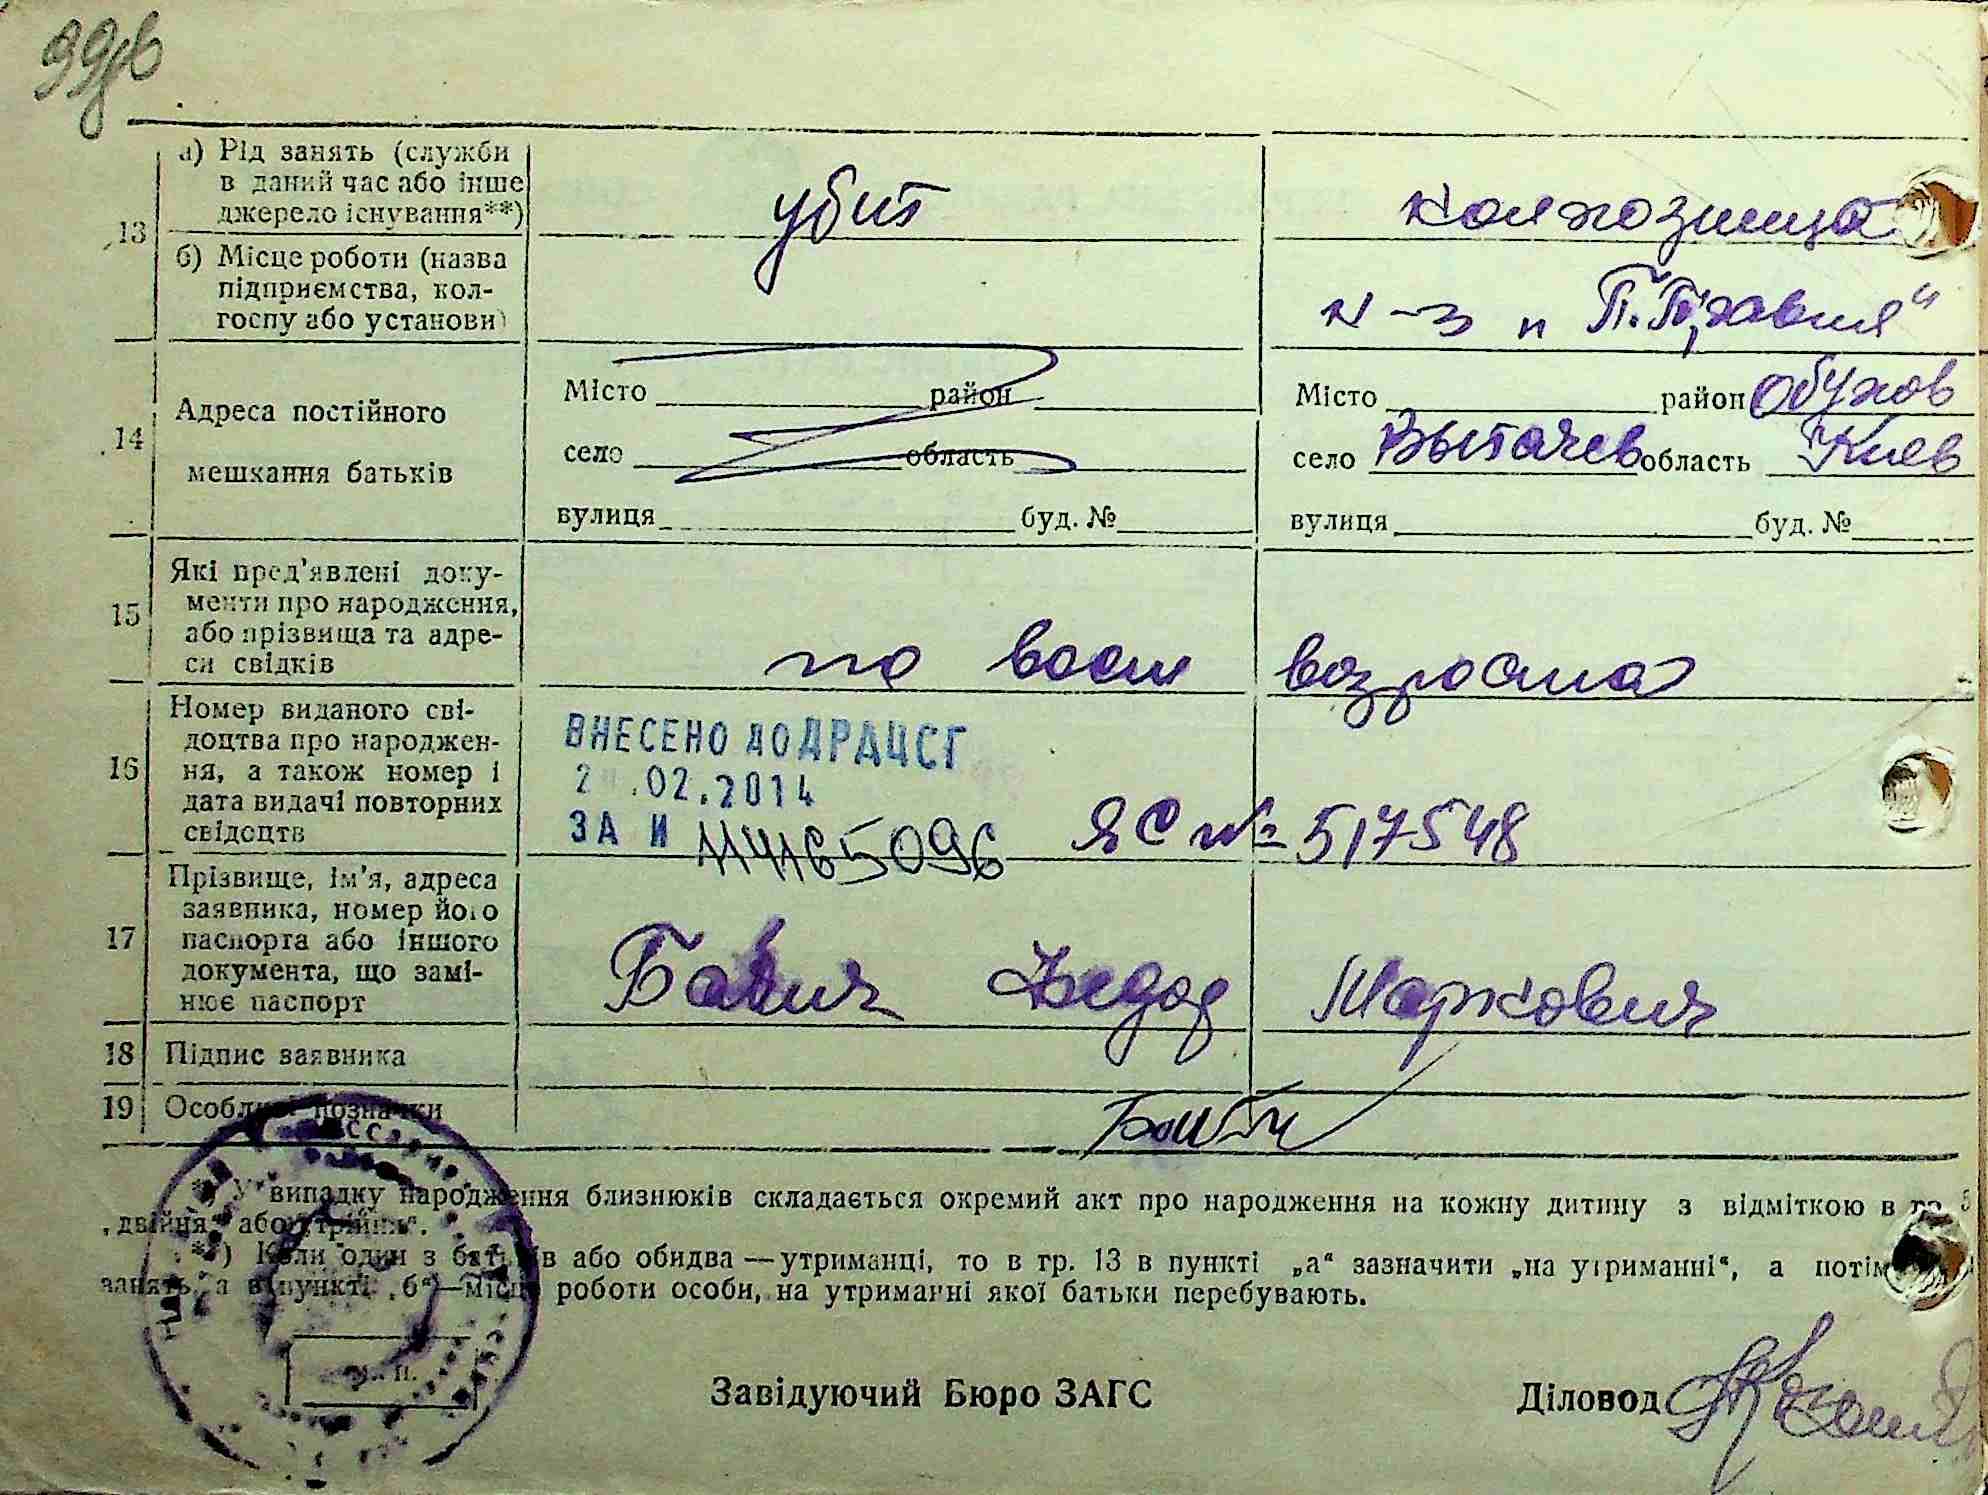 99
13
а) Рід занять (служби
в даний час або інше
джерело існування**)
убит
колхозница
б) Місце роботи (назва
підприємства, кол-
госпу або установи)
к-з
14
Адреса постійного
мешкання батьків
Місто район
село область
вулиця буд. №
Місто район Обухов
село Вытачев область Киев
вулиця буд. №
15
Які пред'явлені доку-
менти про народження,
або прізвища та адре-
си свідків
по возраста
16
Номер виданого сві-
доцтва про народжен-
ня, а також номер і
дата видачі повторних
свідоцтв
ВНЕСЕНО ДО ДРАЦСГ
2 .02.2014
ЗА №
ЯС № 517548
17
Прізвище, ім'я, адреса
заявника, номер його
паспорта або іншого
документа, що замі-
нює паспорт
Маркович
18 Підпис заявника
19 Особливі позначки
*) У випадку народження близнюків складається окремий акт про народження на кожну дитину з відміткою в гр. 5
„двійня“ або „трійня“.
**) Коли один з батьків або обидва — утриманці, то в гр. 13 в пункті „а“ зазначити „на утриманні“, а потім
занять, а в пункті „б“—місце роботи особи, на утриманні якої батьки перебувають.
М. П.
Завідуючий Бюро ЗАГС Діловод